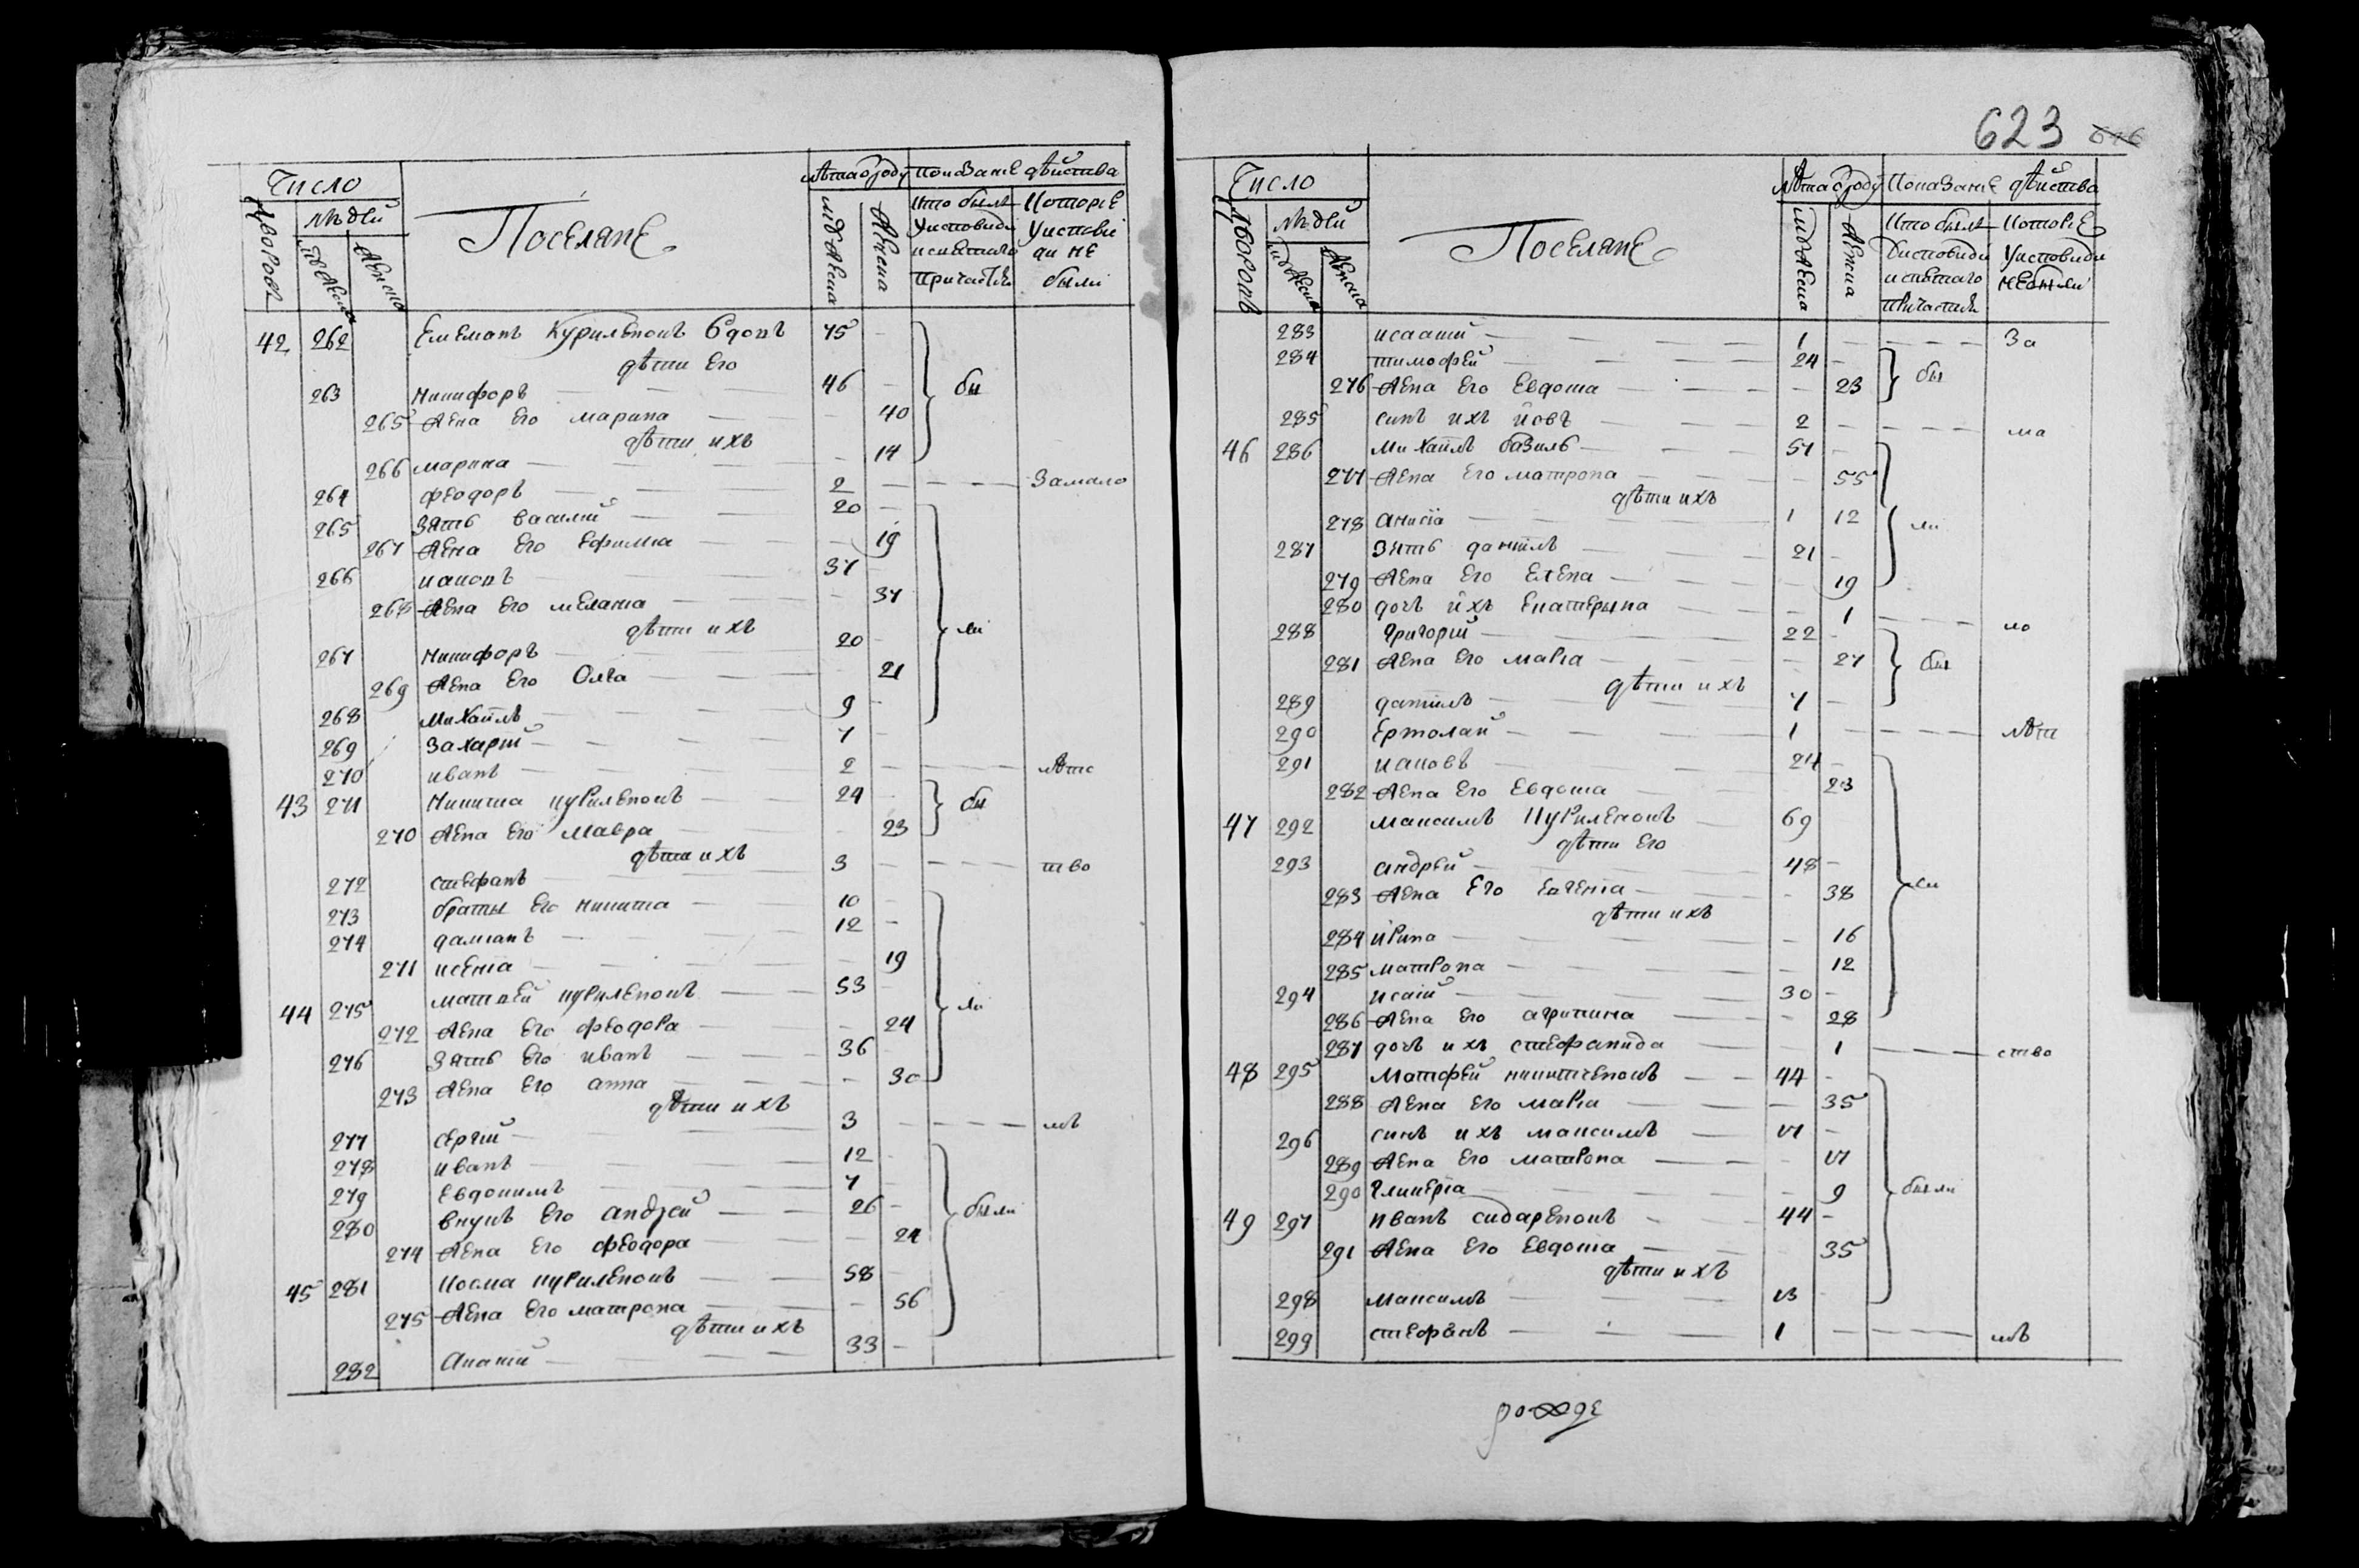 Число
людей
Дворовъ
Поселяне
лѣта от роду
показание действа
мужеска
женска
Кто былъ
У исповеди
и святаго
Причастия
Которые
У испове
ди не
были
42 262 Емемонъ Куриленокъ Вдовъ 75 -
дѣти его
263 Никифоръ 46 - бы
265 Жена его марина - 40
дѣти ихъ
266 марина - 14
264 феодоръ 2 - замало
265 зять василий 20 -
267 Жена его ефимиа - 19
266 иаковъ 37
268 Жена его меланиа - 37
дѣти ихъ ли
267 Никифоръ 20 -
269 Жена его Олга - 21
268 михаилъ 9 -
269 захарий 7 -
270 иванъ 2 - лѣтс
43 271 Никита куриленокъ 24 - бы
270 Жена его мавра - 23
дѣти ихъ
272 стефанъ 3 - тво
273 браты его никита 10 -
274 дамианъ 12 -
271 ксениа - 19
44 275 матвей куриленокъ 53 - ли
272 Жена его феодора - 24
276 зять его иванъ 36 -
273 Жена его анна - 30
дѣти ихъ
277 сергий 3 - мъ
278 иванъ 12 -
279 Евдокимъ 7 -
280 внукъ его андрей 26 - были
274 Жена его феодора - 24
45 281 косма куриленокъ 58 -
275 Жена его матрона - 56
дѣти ихъ
282 Анании 33 -
623
Число
людей
Дворовъ
Поселяне
лѣта от роду
Показание действа
мужеска
женска
Кто былъ
У исповеди
и святаго
причастия
Которые
У исповеди
не были
283 исаакий 1 - За
284 тимофей 24 - бы
276 Жена его Евдокиа - 23
285 синъ ихъ иовъ 2 - ма
46 286 михаилъ 57 -
277 Жена его матрона - 55
дѣти ихъ
278 анисиа 1 12 ли
287 зять данилъ 21 -
279 Жена его Елена - 19
280 дочъ ихъ Екатерына - 1 ло
288 григорий 22 -
281 Жена его мариа - 27 бы
дѣти ихъ
289 данилъ 7 -
290 Ермолай 1 - лѣт
291 иаковъ 24 -
282 Жена его Евдокиа 23
47 292 максимъ Куриленокъ 69
дѣти его
293 андрей 48 - ли
283 Жена его Евгениа - 38
дѣти ихъ
284 ирина - 16
285 матрона - 12
294 исаий 30 -
286 Жена его агрипина - 28
287 дочъ ихъ стефанида - 1 ство
48 295 Матфей никитченокъ 44 -
288 Жена его мариа - 35
296 синъ ихъ максимъ 17 -
289 Жена его матрона - 17
290 гликериа - 9 были
49 297 иванъ сидаренокъ 44 -
291 Жена его Евдокиа 35
дѣти ихъ
298 максимъ 13 -
299 стефанъ 1 - мъ